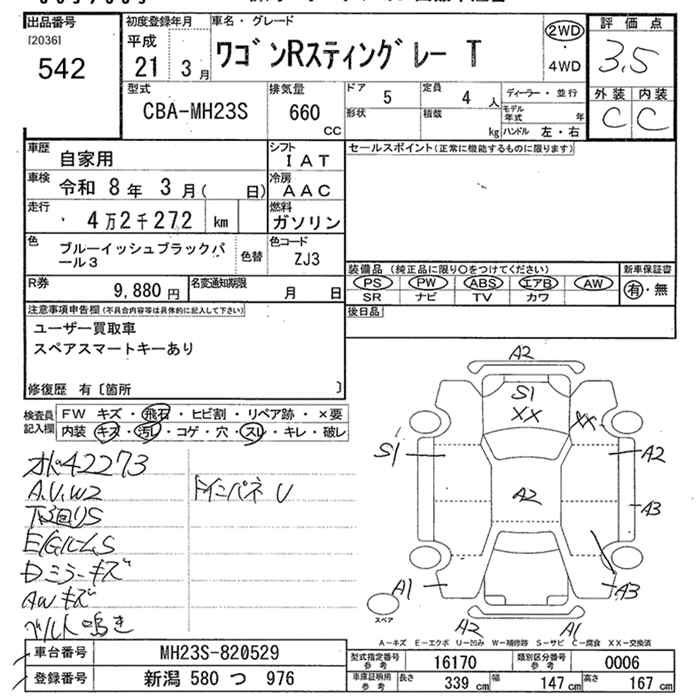 出品番号
[2036]
542
初度登録年月
平成
21 3 月
車名・グレード
ワゴンRスティングレー T
2WD
・
4WD
評価点
3.5
外装 内装
C C
型式
CBA-MH23S
排気量
660
CC
ドア
5
定員
4 人
形状
積載
kg
ディーラー・並行
モデル年式 年
ハンドル 左・右
車歴
自家用
シフト
IAT
車検
令和 8 年 3 月( 日)
冷房
AAC
走行
4 万 2 千 272 km
燃料
ガソリン
色
ブルーイッシュブラックパール3
色替
色コード
ZJ3
R券
9,880 円
名変通知期限
月 日
セールスポイント(正常に機能するものに限ります)
装備品 (純正品に限り○をつけてください)
PS PW ABS エアB AW
SR ナビ TV カワ
新車保証書
有・無
後日品
注意事項申告欄(不具合内容等は具体的に記入して下さい)
ユーザー買取車
スペアスマートキーあり
修復歴 有〔箇所 〕
検査員記入欄
FW キズ・飛石・ヒビ割・リペア跡・×要
内装 キズ・汚れ・コゲ・穴・スレ・キレ・破レ
42273
A.U.W2
下廻りS
Dミラーキズ
AWキズ
ベルト鳴き
A2
S1
XX
XX
S1
A2
A2
A3
A1
A3
A2
A1
スペア
A-キズ E-エクボ U-凹み W-補修跡 S-サビ C-腐食 XX-交換済
車台番号
MH23S-820529
登録番号
新潟 580 つ 976
型式指定番号
参考
16170
類別区分番号
参考
0006
車庫証明用
参考
長さ 339 cm 幅 147 cm 高さ 167 cm